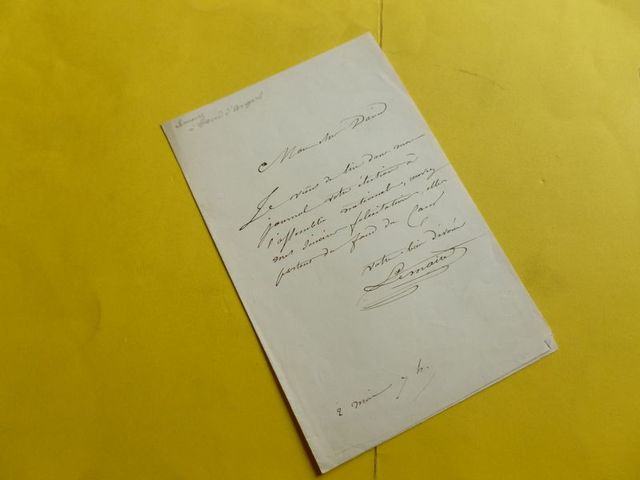 Lemaire
à David d'Angers
Mon cher David
Je viens de lire dans mon
journal votre élection à
l'assemblée nationale, recevez
mes sincères felicitations, elles
partent du fond du Cœur
votre bien dévoué
Lemaire
2 mai 7 h.